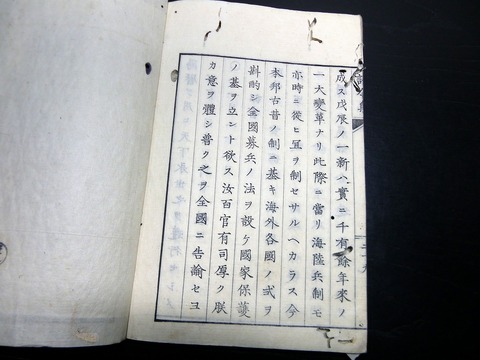 成ス戊辰ノ一新ハ實ニ千有餘年來ノ
一大變革ナリ此際ニ當リ海陸兵制モ
亦時ニ從ヒ宜ヲ制セサルヘカラス今
本邦古昔ノ制ニ基キ海外各國ノ式ヲ
斟酌シ全國募兵ノ法ヲ設ケ國家保護
ノ基ヲ立ント欲ス汝百官有司厚ク朕
カ意ヲ體シ普ク之ヲ全國ニ告諭セヨ